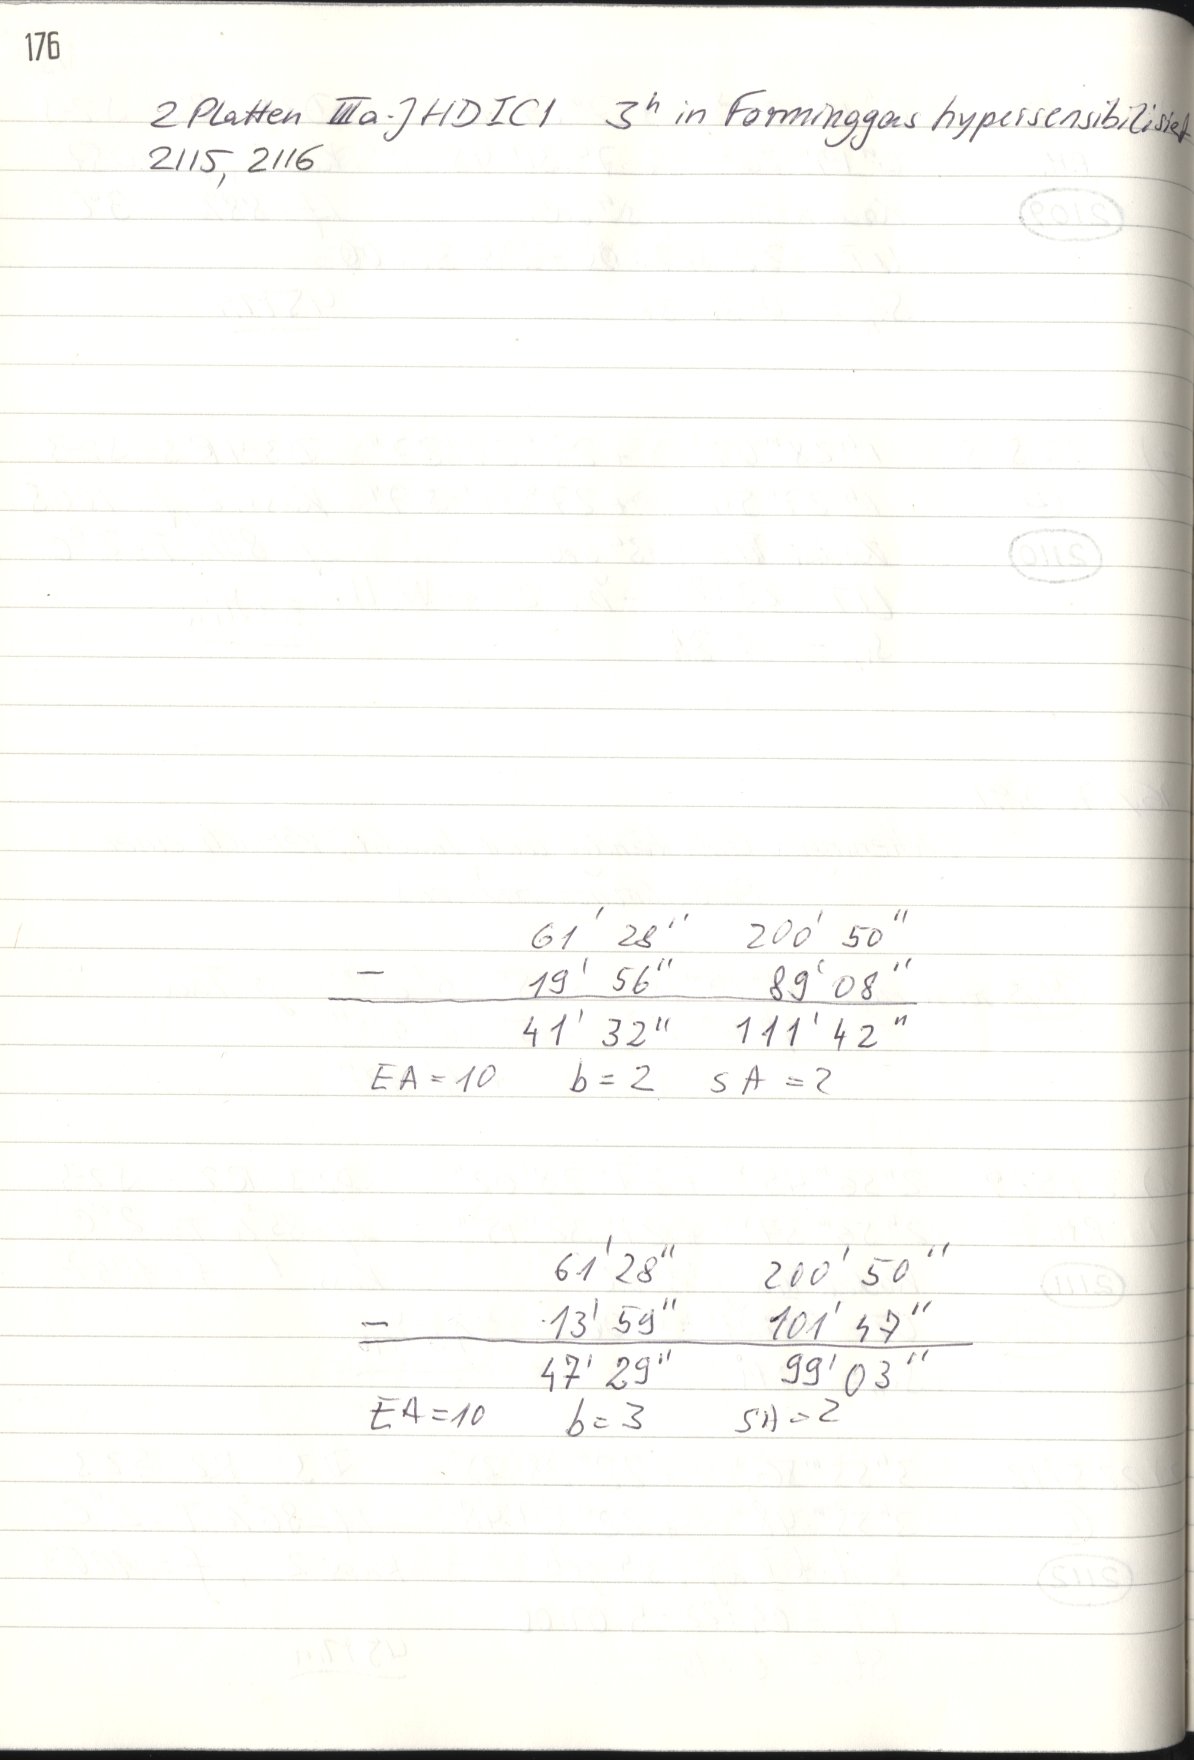 176
2 Platten IIIa-J HDIC1 3ʰ in Forminggas hypersensibilisiert
2115, 2116
61' 28" 200' 50"
- 19' 56" 89' 08"
41' 32" 111' 42"
EA = 10 b = 2 SA = 2
61' 28" 200' 50"
- 13' 59" 101' 47"
47' 29" 99' 03"
EA = 10 b = 3 SA = 2